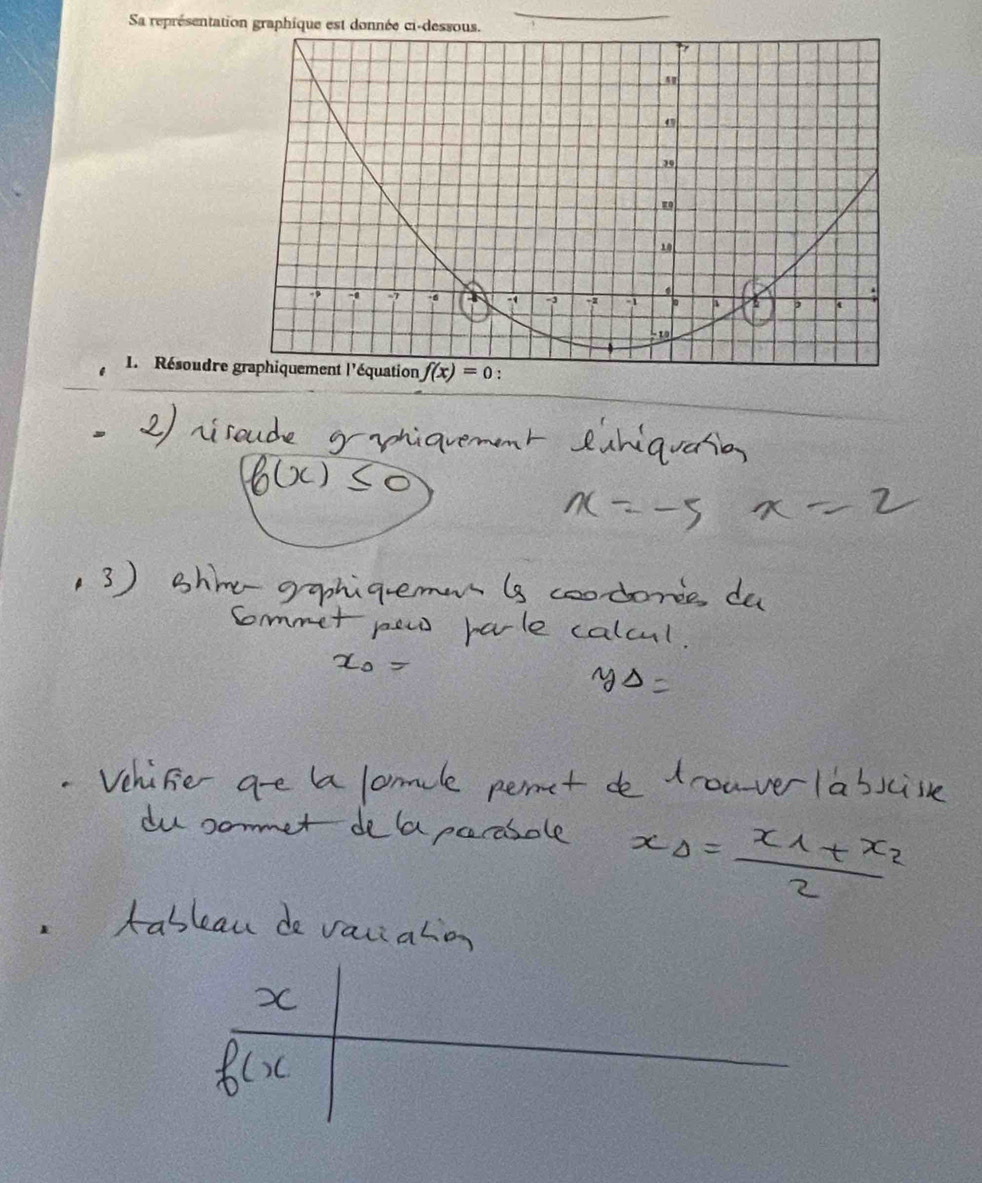 Sa représentation graphique est donnée ci-dessous.
y
-9 -8 -7 -6 -4 -3 -2 -1 0
-10
1. Résoudre graphiquement l'équation f(x) = 0 :
2) résoudre graphiquement l'inéquation
f(x) ≤ 0
x = -5 x = 2
3) estimer graphiquement les coordonnées du
sommet puis par le calcul.
xs = ys =
. Vérifier que la formule permet de trouver l'abscisse
du sommet de la parabole xs = x1 + x2
2
. tableau de variation
x
f(x